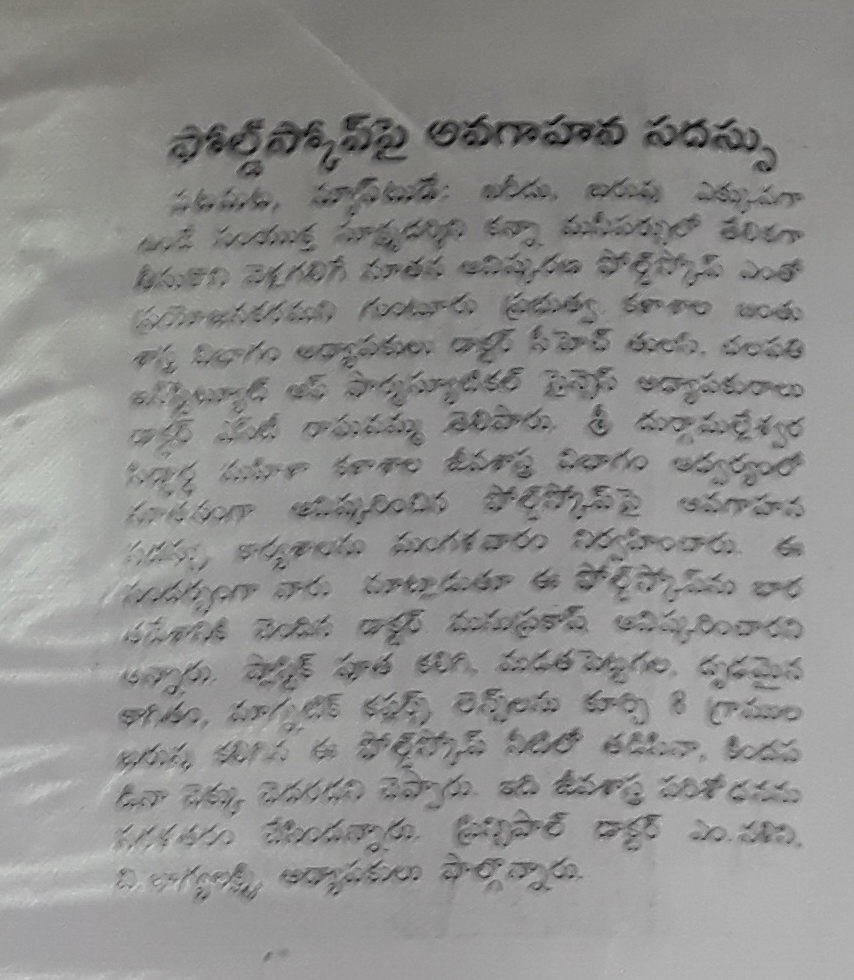 ఫోల్డ్‌స్కోప్‌పై అవగాహన సదస్సు
పటమట, న్యూస్‌టుడే: ఖరీదు, బరువు ఎక్కువగా
ఉండే సంయుక్త సూక్ష్మదర్శిని కన్నా మనీపర్సులో తేలికగా
తీసుకొని వెళ్లగలిగే నూతన ఆవిష్కరణ ఫోల్డ్‌స్కోప్ ఎంతో
ప్రయోజనకరమని గుంటూరు ప్రభుత్వ కళాశాల జంతు
శాస్త్ర విభాగం అధ్యాపకులు డాక్టర్ సీహెచ్ తులసి, చలపతి
ఇన్‌స్టిట్యూట్ ఆఫ్ ఫార్మస్యూటికల్ సైన్సెస్ అధ్యాపకురాలు
డాక్టర్ ఎంటీ రావమ్మ తెలిపారు. శ్రీ దుర్గామల్లేశ్వర
సిద్ధార్థ మహిళా కళాశాల జీవశాస్త్ర విభాగం ఆధ్వర్యంలో
నూతనంగా ఆవిష్కరించిన ఫోల్డ్‌స్కోప్‌పై అవగాహన
సదస్సు, కార్యశాలను మంగళవారం నిర్వహించారు. ఈ
సందర్భంగా వారు మాట్లాడుతూ ఈ ఫోల్డ్‌స్కోప్‌ను భార
తదేశానికి చెందిన డాక్టర్ మనుప్రకాష్ ఆవిష్కరించారని
అన్నారు. ప్లాస్టిక్ పూత కలిగి, మడతపెట్టగల, దృఢమైన
కాగితం, మాగ్నటిక్ కప్లర్స్, లెన్స్‌లను కూర్చి 8 గ్రాముల
బరువు కలిగిన ఈ ఫోల్డ్‌స్కోప్ నీటిలో తడిసినా, కిందప
డినా చెక్కు చెదరదని చెప్పారు. ఇది జీవశాస్త్ర పరిశోధనను
సరళతరం చేసిందన్నారు. ప్రిన్సిపాల్ డాక్టర్ ఎం.
భాగ్యలక్ష్మి, అధ్యాపకులు పాల్గొన్నారు.